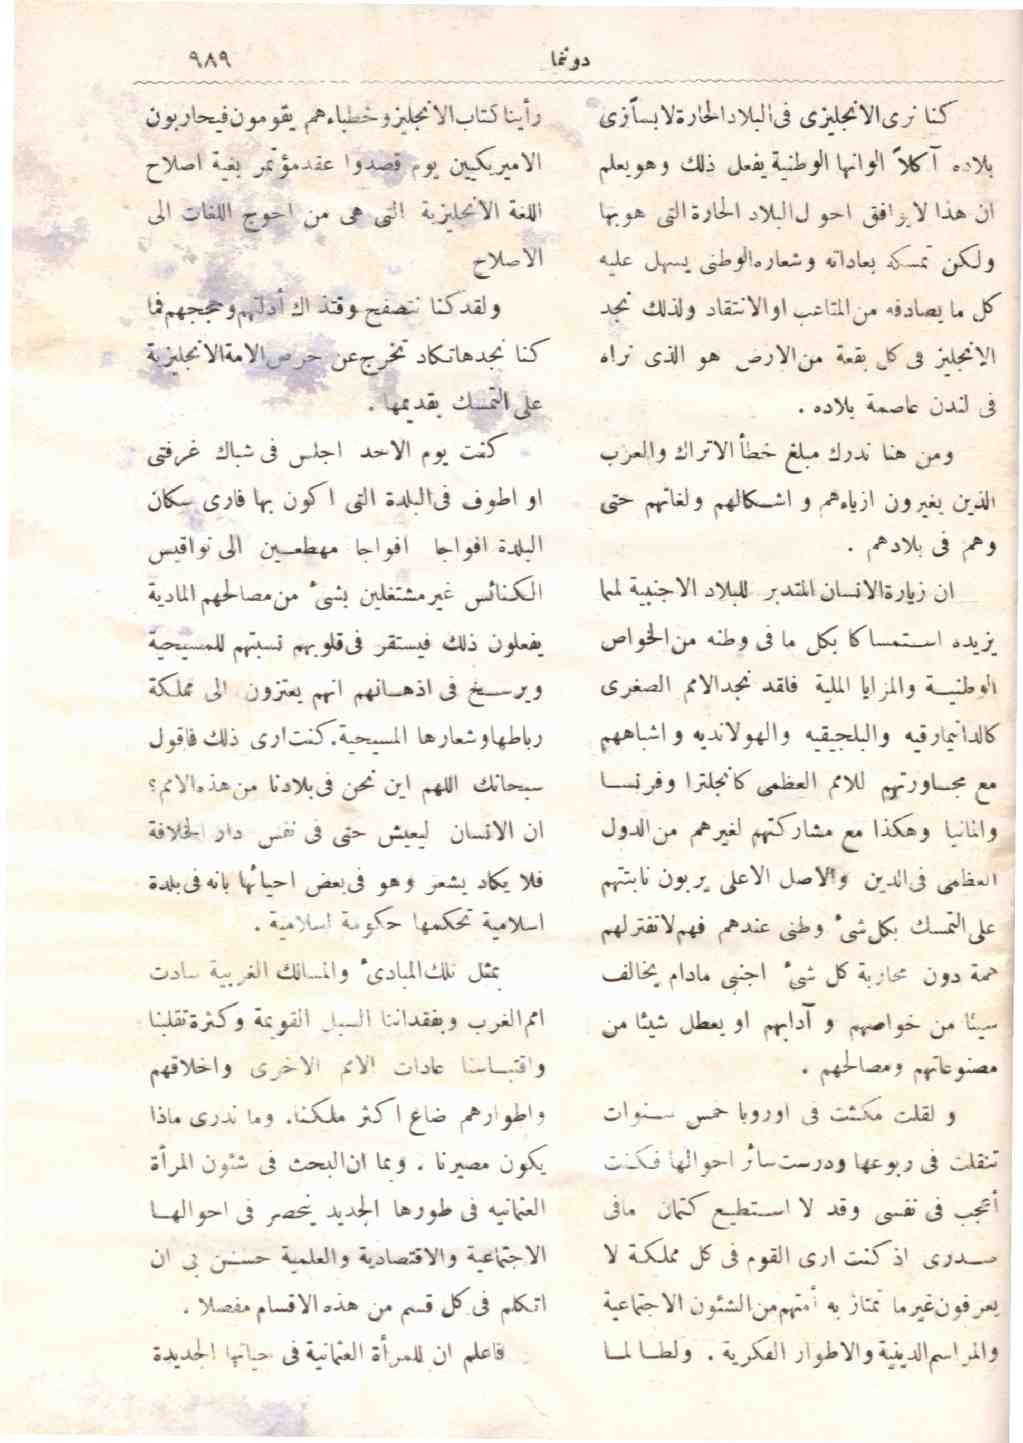 دونما
٩٨٩
كنا نرى الانجليزى فى البلاد الحارة لابسا زى
بلاده آكلا الوانها الوطنية يفعل ذلك وهو يعلم
ان هذا لا يوافق احوال البلاد الحارة التى هو بها
ولكن تمسكه بعاداته وشعاره الوطنى يسهل عليه
كل ما يصادفه من المتاعب او الانتقاد ولذلك نجد
الانجليز فى كل بقعة من الارض هو الذى نراه
فى لندن عاصمة بلاده .
ومن هنا ندرك مبلغ خطأ الاتراك والعرب
الذين يغيرون ازياءهم و اشكالهم ولغاتهم حتى
وهم فى بلادهم .
ان زيارة الانسان المتدبر للبلاد الاجنبية لمما
يزيده استمساكا بكل ما فى وطنه من الخواص
الوطنية والمزايا الملية فلقد نجد الامم الصغرى
كالدانيمارقيه والبلجيقيه والهولانديه و اشباههم
مع مجاورتهم للامم العظمى كانجلترا وفرنسا
والمانيا وهكذا مع مشاركتهم لغيرهم من الدول
العظمى فى الدين والاصل الاعلى يربون نابتتهم
على التمسك بكل شىء وطنى عندهم فهم لا تفتر لهم
همة دون محاربة كل شىء اجنبى مادام يخالف
سيئا من خواصهم و آدابهم او يعطل شيئا من
مصنوعاتهم ومصالحهم .
و لقلت مكثت فى اوروبا خمس سنوات
تنقلت فى ربوعها ودرست سائر احوالها فكنت
أعجب فى نفسى وقد لا استطيع كتمان مافى
صدرى اذ كنت ارى القوم فى كل مملكة لا
يعرفون غير ما تمتاز به أمتهم من الشئون الاجتماعية
والمراسم الدينية والاطوار الفكرية . ولطالما
رأينا كتاب الانجليز وخطباءهم يقومون فيحاربون
الاميريكيين يوم قصدوا عقد مؤتمر بغية اصلاح
اللغة الانجليزية التى هى من احوج اللغات الى
الاصلاح
ولقد كنا نتصفح وقتذاك أدلتهم وحججهم فما
كنا نجدها تكاد تخرج عن حرص الامة الانجليزية
على التمسك بقديمها .
كنت يوم الاحد اجلس فى شباك غرفتى
او اطوف فى البلدة التى اكون بها فارى سكان
البلدة افواجا افواجا مهطعين الى نواقيس
الكنائس غير مشتغلين بشىء من مصالحهم المادية
يفعلون ذلك فيستقر فى قلوبهم نسبتهم للمسيحية
ويرسخ فى اذهانهم انهم يعتزون الى مملكة
رباطها وشعارها المسيحية. كنت ارى ذلك فاقول
سبحانك اللهم اين نحن فى بلادنا من هذه الامم؟
ان الانسان ليعيش حتى فى نفس دار الخلافة
فلا يكاد يشعر وهو فى بعض احيائها بانه فى بلدة
اسلامية تحكمها حكومة اسلامية .
بمثل تلك المبادىء والمسالك الغربية سادت
امم الغرب وبفقداننا السبل القويمة وكثرة تقلبنا
واقتباسنا عادات الامم الاخرى واخلاقهم
واطوارهم ضاع اكثر ملكنا. وما ندرى ماذا
يكون مصيرنا . وبما ان البحث فى شئون المرأة
العثمانيه فى طورها الجديد ينحصر فى احوالها
الاجتماعية والاقتصادية والعلمية حسن بى ان
اتكلم فى كل قسم من هذه الاقسام مفصلا .
فاعلم ان للمرأة العثمانية فى حياتها الجديدة